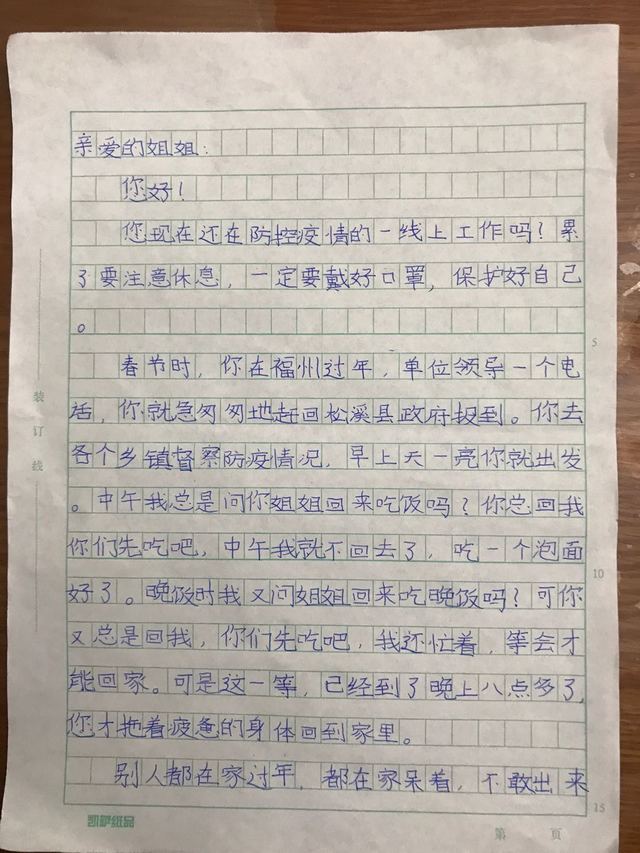 亲爱的姐姐：
您好！
您现在还在防控疫情的一线上工作吗？累
了要注意休息，一定要戴好口罩，保护好自己
。
5
春节时，你在福州过年，单位领导一个电
话，你就急匆匆地赶回松溪县政府报到。你去
各个乡镇督察防疫情况，早上天一亮你就出发
。中午我总是问你姐姐回来吃饭吗？你总回我
你们先吃吧，中午我就不回去了，吃一个泡面
10
好了。晚饭时我又问姐姐回来吃晚饭吗？可你
又总是回我，你们先吃吧，我还忙着，等会才
能回家。可是这一等，已经到了晚上八点多了，
您才拖着疲惫的身体回到家里。
别人都在家过年，都在家呆着，不敢出来
15
装订线
凯萨纸品
第 页